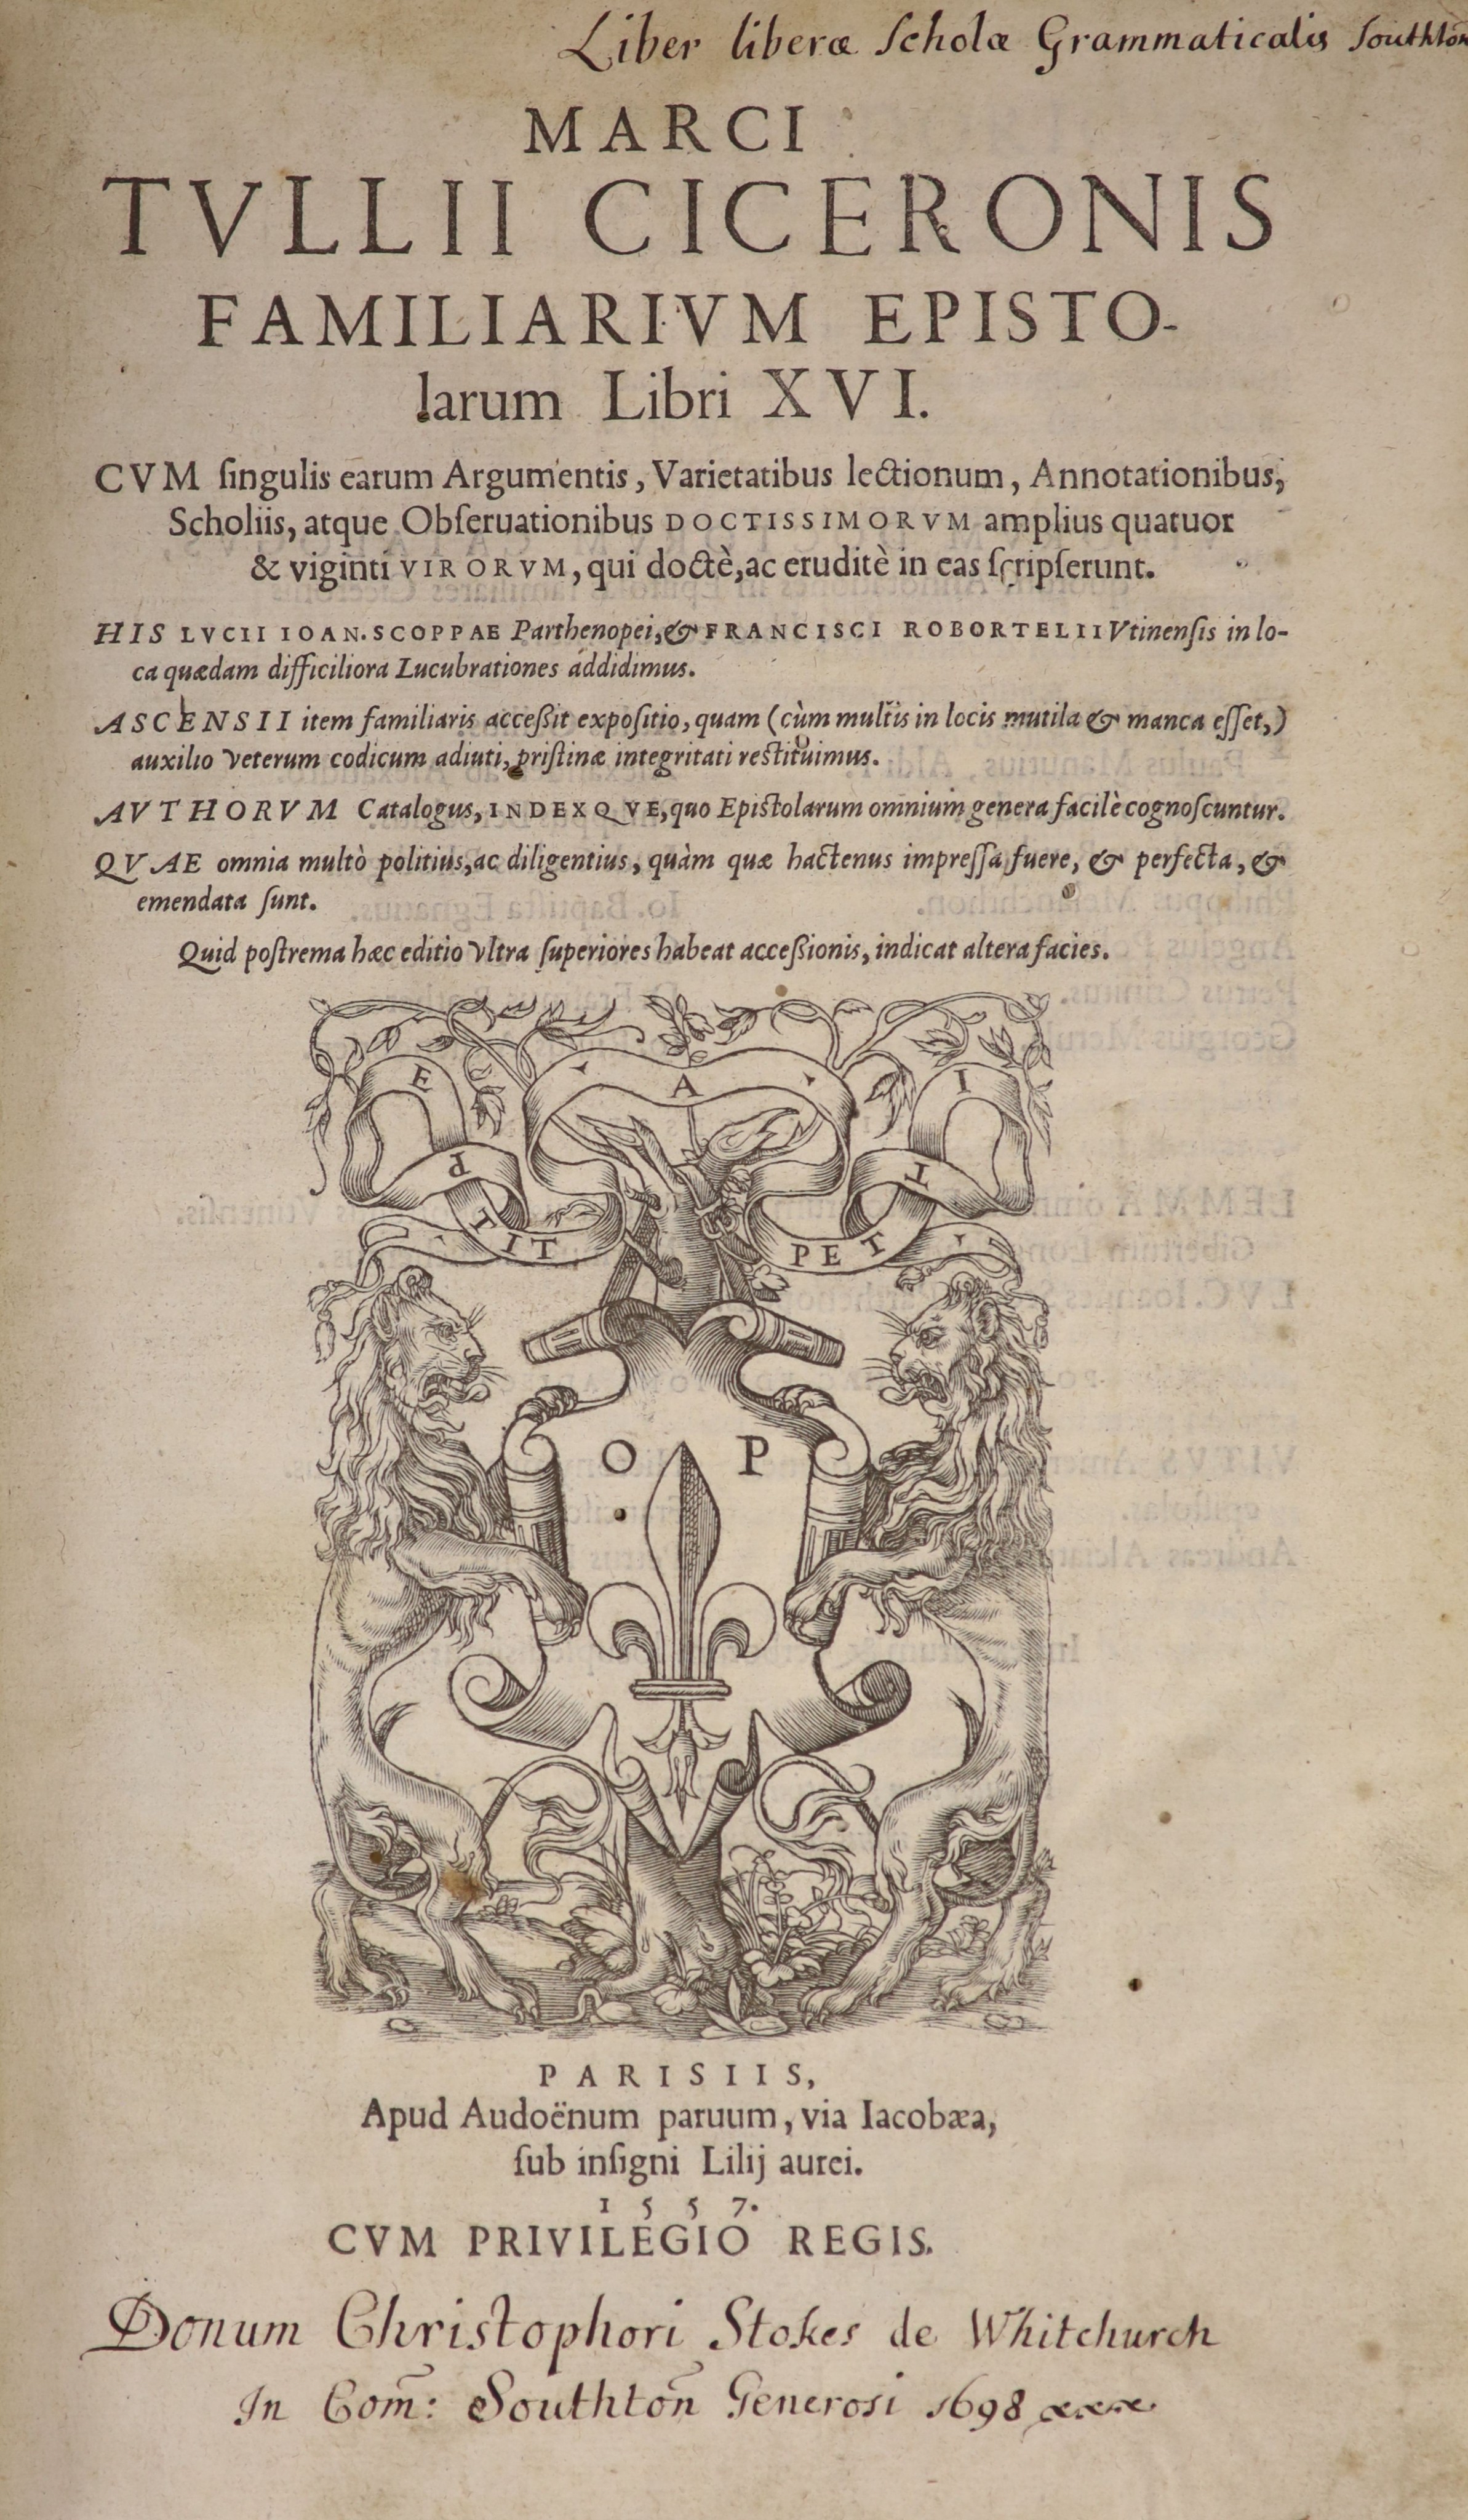 Liber liberæ Scholæ Grammaticalis Southton
MARCI
TVLLII CICERONIS
FAMILIARIVM EPISTO-
larum Libri XVI.
CVM ſingulis earum Argumentis, Varietatibus lectionum, Annotationibus,
Scholiis, atque Obſeruationibus DOCTISSIMORVM amplius quatuor
& viginti VIRORVM, qui doctè, ac eruditè in eas ſcripſerunt.
HIS LVCII IOAN. SCOPPAE Parthenopei, & FRANCISCI ROBORTELII Vtinenſis in lo-
ca quædam difficiliora Lucubrationes addidimus.
ASCENSII item familiaris acceßit expoſitio, quam (cùm multis in locis mutila & manca eſſet,)
auxilio veterum codicum adiuti, priſtinæ integritati reſtituimus.
AVTHORVM Catalogus, INDEXQVE, quo Epiſtolarum omnium genera facilè cognoſcuntur.
QVAE omnia multò politius, ac diligentius, quàm quæ hactenus impreſſa fuere, & perfecta, &
emendata ſunt.
Quid poſtrema hæc editio vltra ſuperiores habeat acceßionis, indicat altera facies.
E A I
P T
TIT PET
O P
PARISIIS,
Apud Audoënum paruum, via Iacobæa,
ſub inſigni Lilij aurei.
1557.
CVM PRIVILEGIO REGIS.
Donum Christophori Stokes de Whitchurch
In Com̃: Southtoñ Generosi 1698